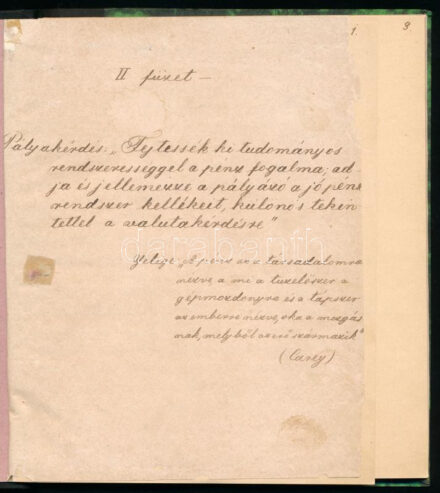 1.
3.
II füzet —
Pályakérdés: „Fejtessék ki tudományos
rendszerességgel a pénz fogalma; ad-
ja és jellemezze a pályázó a jó pénz
rendszer kellékeit, különös tekin-
tettel a valutakérdésre"
darabanth
Jelige „A pénz az a társadalomra
nézve, a mi a tüzelőszer a
gépmozdonyra és a tápszer
az emberre nézve, oka a mozgás
nak, melyből az erő származik"
(Carey)